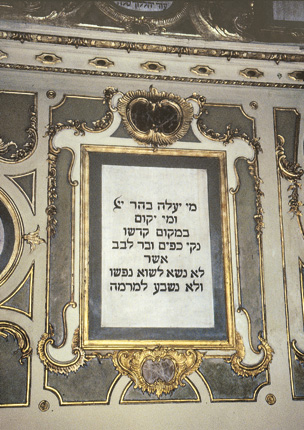 מי יעלה בהר יי
ומי יקום
במקום קדשו
נקי כפים ובר לבב
אשר
לא נשא לשוא נפשו
ולא נשבע למרמה